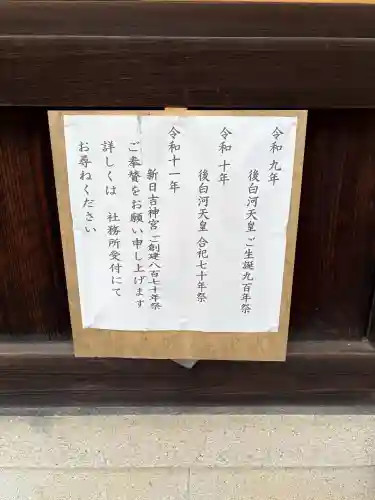 令和九年
後白河天皇ご生誕九百年祭
令和十年
後白河天皇 合祀七十年祭
令和十一年
新日吉神宮ご創建八百七十年祭
ご奉賛をお願い申し上げます
詳しくは 社務所受付にて
お尋ねください